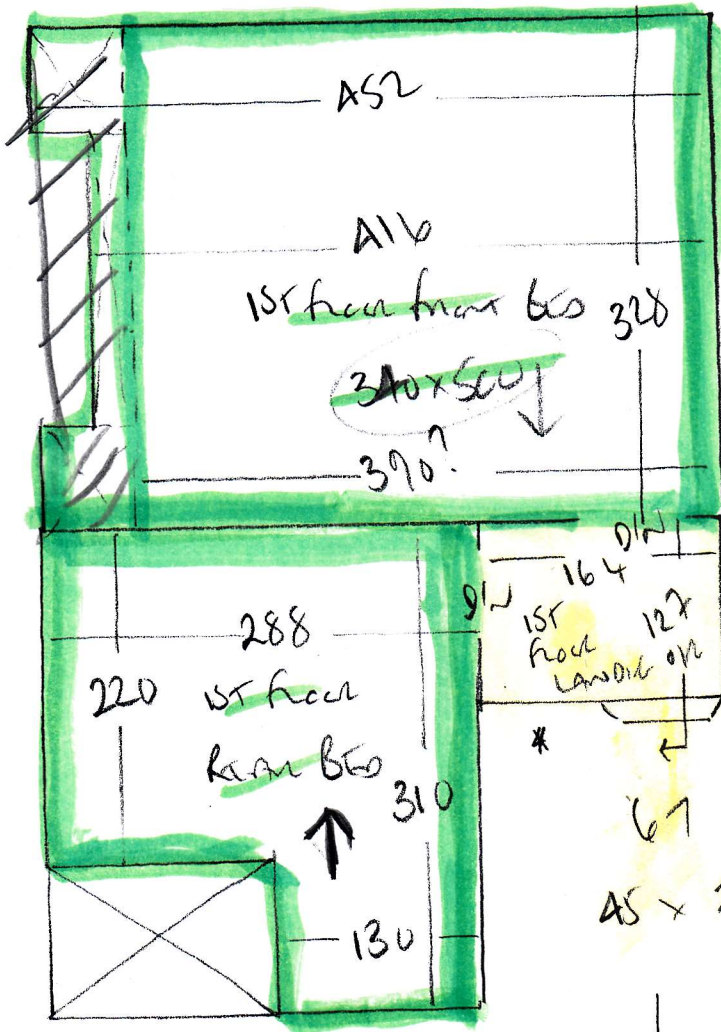 452
416
1ST floor front BED
328
340x500
390?
D/W
164
D/W
1ST
FLOOR
LANDING
127
O/R
288
220
1ST floor
Rear BED
310
67
45 x
130